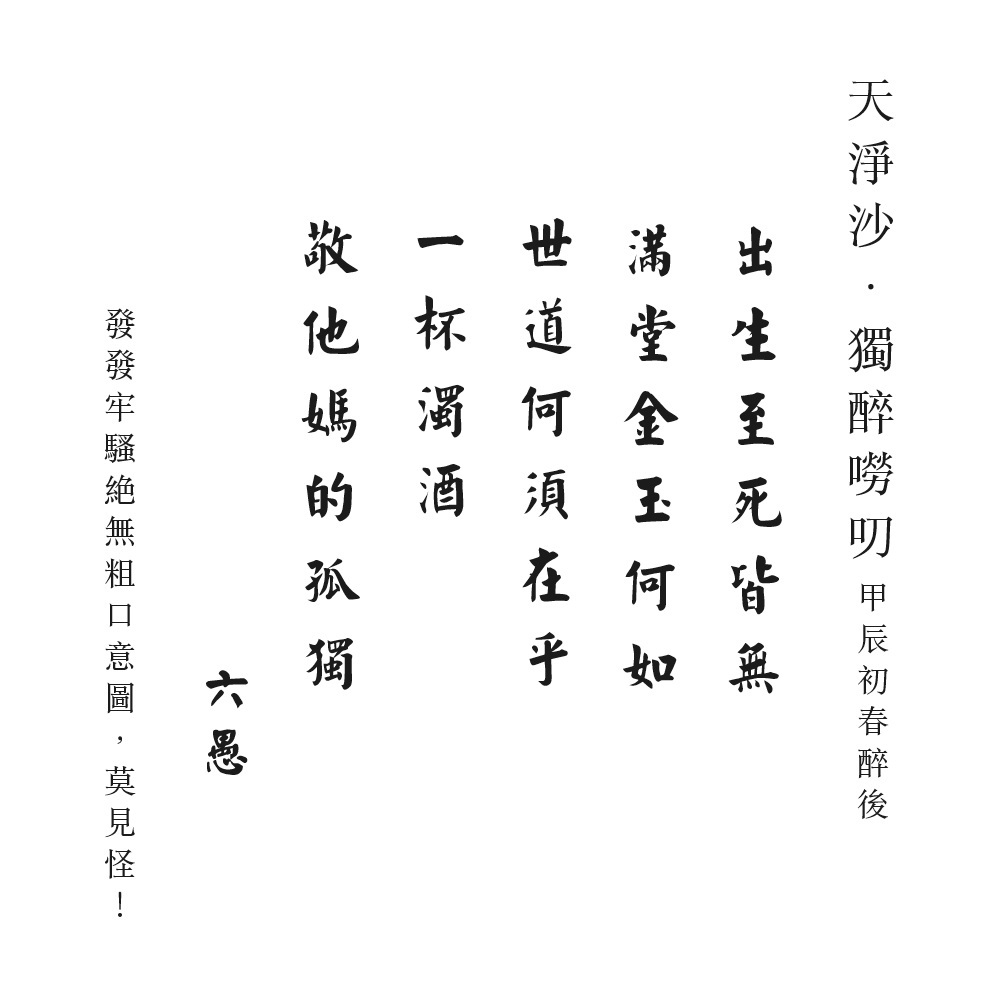 天淨沙．獨醉嘮叨 甲辰初春醉後
出生至死皆無
滿堂金玉何如
世道何須在乎
一杯濁酒
敬他媽的孤獨
六愚
發發牢騷絕無粗口意圖，莫見怪！